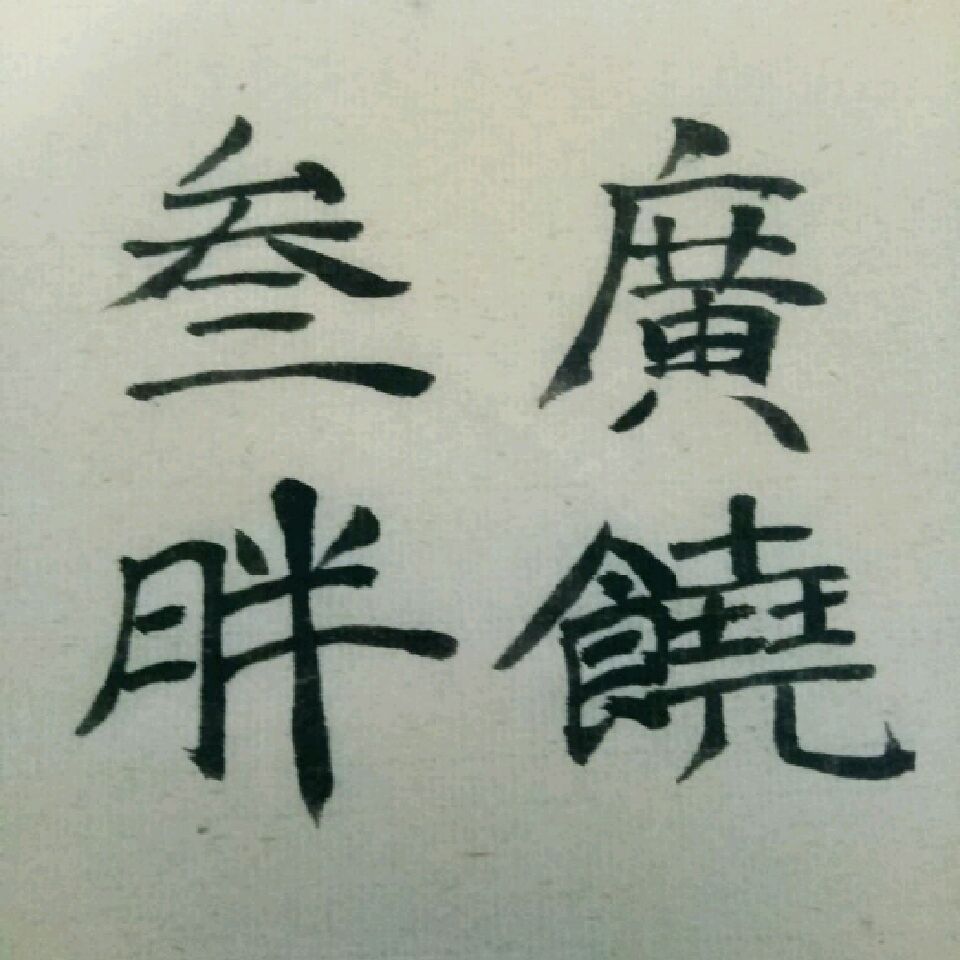 廣饒
叁胖